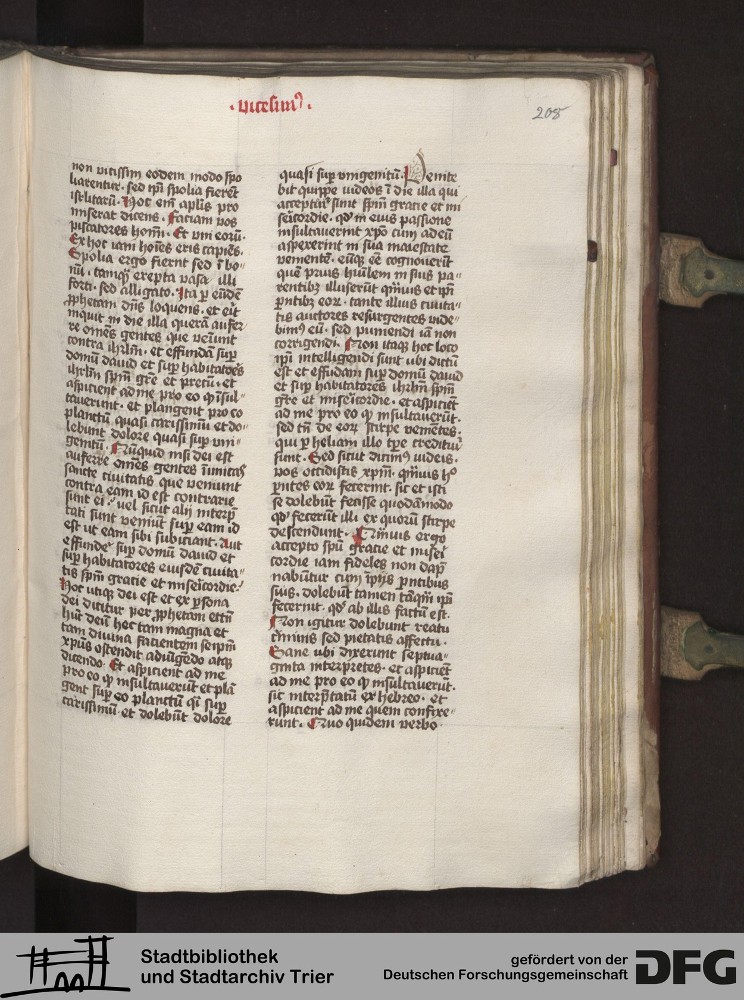 · vicesimꝰ ·
208
non vitissim eodem modo spo
liarentur· sed ip̄i spolia fierēt
isrlitarū. Hoc em̄ aplis pro
miserat dicens. Faciam vos
piscatores homī. Et vni eorū.
Ex hoc iam hoīes eris capiēs.
Spolia ergo fient sed ī bo⸗
nū. tamqȝ erepta vasa illi
forti· sed alligato. Ita ꝑ eūdē
ꝓphetam dn̄s loquens. et eit
inquit in die illa querā aufer
re omēs gentes que veiūnt
contra ihrlm̄· et effundā suꝑ
domū dauid et suꝑ habitatoēs
ihrlm̄ spm̄ gr̄e et precū. et
aspicient ad me pro eo qꝫ īsul⸗
tauerunt. et plangent pro eo
planctū quasi carissimū et do⸗
lebunt dolore quasi suꝑ vni⸗
gentū. Nūquid nisi dei est
auferre omēs gentes īimicas
sancte ciuitatis que veniunt
contra eam id est contrarie
sunt ei· vel sicut alij interp̄
tati sunt veniūt suꝑ eam id
est ut eam sibi subiciant. Aut
effundē suꝑ domū dauid et
suꝑ habitatores eiusdē ciuita⸗
tis spm̄ gratie et miscīcordie.
Hoc utiqȝ dei est et ex ꝑsona
dei dicitur per ꝓphetam et tn̄
hūc deū hec tam magna et
tam diuina facientem seip̄m
xpūs ostendit adiūgēdo atqȝ
dicendo. Et aspicient ad me
pro eo qꝫ insultauerūt et plā
gent suꝑ eo planctū q̄i suꝑ
carissimū· et dolebūt dolore
quasi suꝑ vnigenitū. Penite
bit quippe iudeos ī die illa qui
acceptur̄ sunt spm̄ gratie et mi
sēicordie. qd̓ in eius passione
insultauerint xpō cum ad eū
aspexerint in sua maiestate
veniente. eūqȝ eē cognouerīt
quē prius hūilem in suis pa⸗
rentibȝ illuserūt qm̄uis et ip̄i
ꝑntibȝ eoꝝ. tante illius ciuita⸗
tis auctores resurgentes vide⸗
bunt eū. sed puniendi iā non
corrigendi. Non itaqȝ hoc loco
ip̄i intelligendi sunt ubi dictū
est et effudam suꝑ domū dauid
et suꝑ habitatores ihrlm̄ spm̄
gr̄e et misēicordie. et aspiciēt
ad me pro eo qꝫ insultauerūt.
sed tn̄ de eoꝝ stirpe veniētes.
qui ꝑ heliam illo tp̄e credituri
sunt. Sed sicut dicimꝰ iudeis.
vos occidistis xpm̄. qm̄uis hͦ
ꝑntes eoꝝ fecerint. sic et isti
se dolebūt fecisse quodāmodo
qd̓ fecerūt illi ex quorū stirpe
descendunt. Quīuis ergo
accepto spū gratie et misēi
cordie iam fideles non dap̄
nabūtur cum īpijs ꝑntibus
suis. dolebūt tamen tāqm̄ ip̄i
fecerint. qd̓ ab illis factū est.
Non igitur dolebunt reatu
crīminis sed pietatis affectu.
Sane ubi dixerunt septua⸗
ginta interpretes. et aspiciēt
ad me pro eo qꝫ insultauerūt.
sic interp̄tatū ex hebreo. et
aspicient ad me quem confixe⸗
runt. Quo quidem verbo
Stadtbibliothek
und Stadtarchiv Trier
gefördert von der
Deutschen Forschungsgemeinschaft
DFG